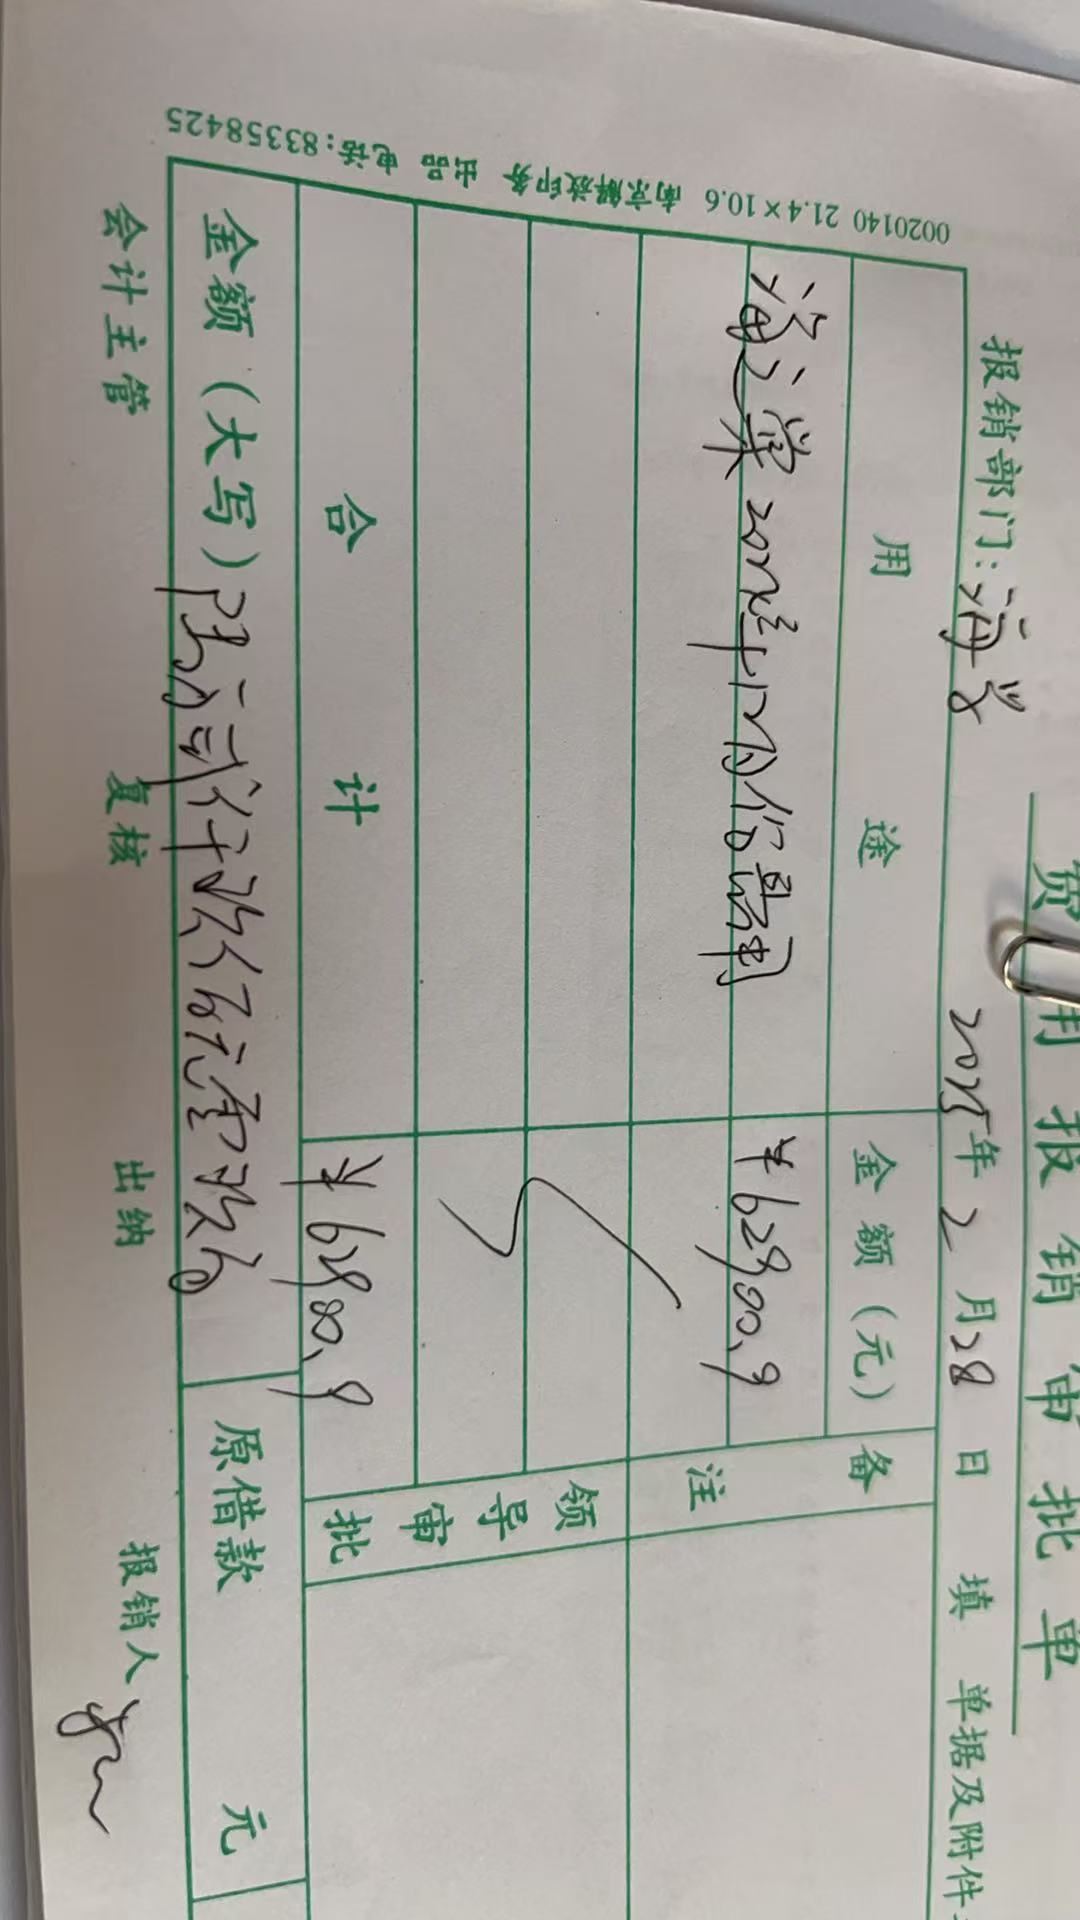 费用报销审批单
报销部门:海棠 2025年2月28日 填 单据及附件
用途 金额(元) 备注
2024年12月份费用 ¥62900.9
领导审批
合计 ¥62900.9
金额(大写)陆万贰仟玖佰元零玖角 原借款 元
会计主管 复核 出纳 报销人
0020140 21.4×10.6 南京解放印务 出品 电话:83358425